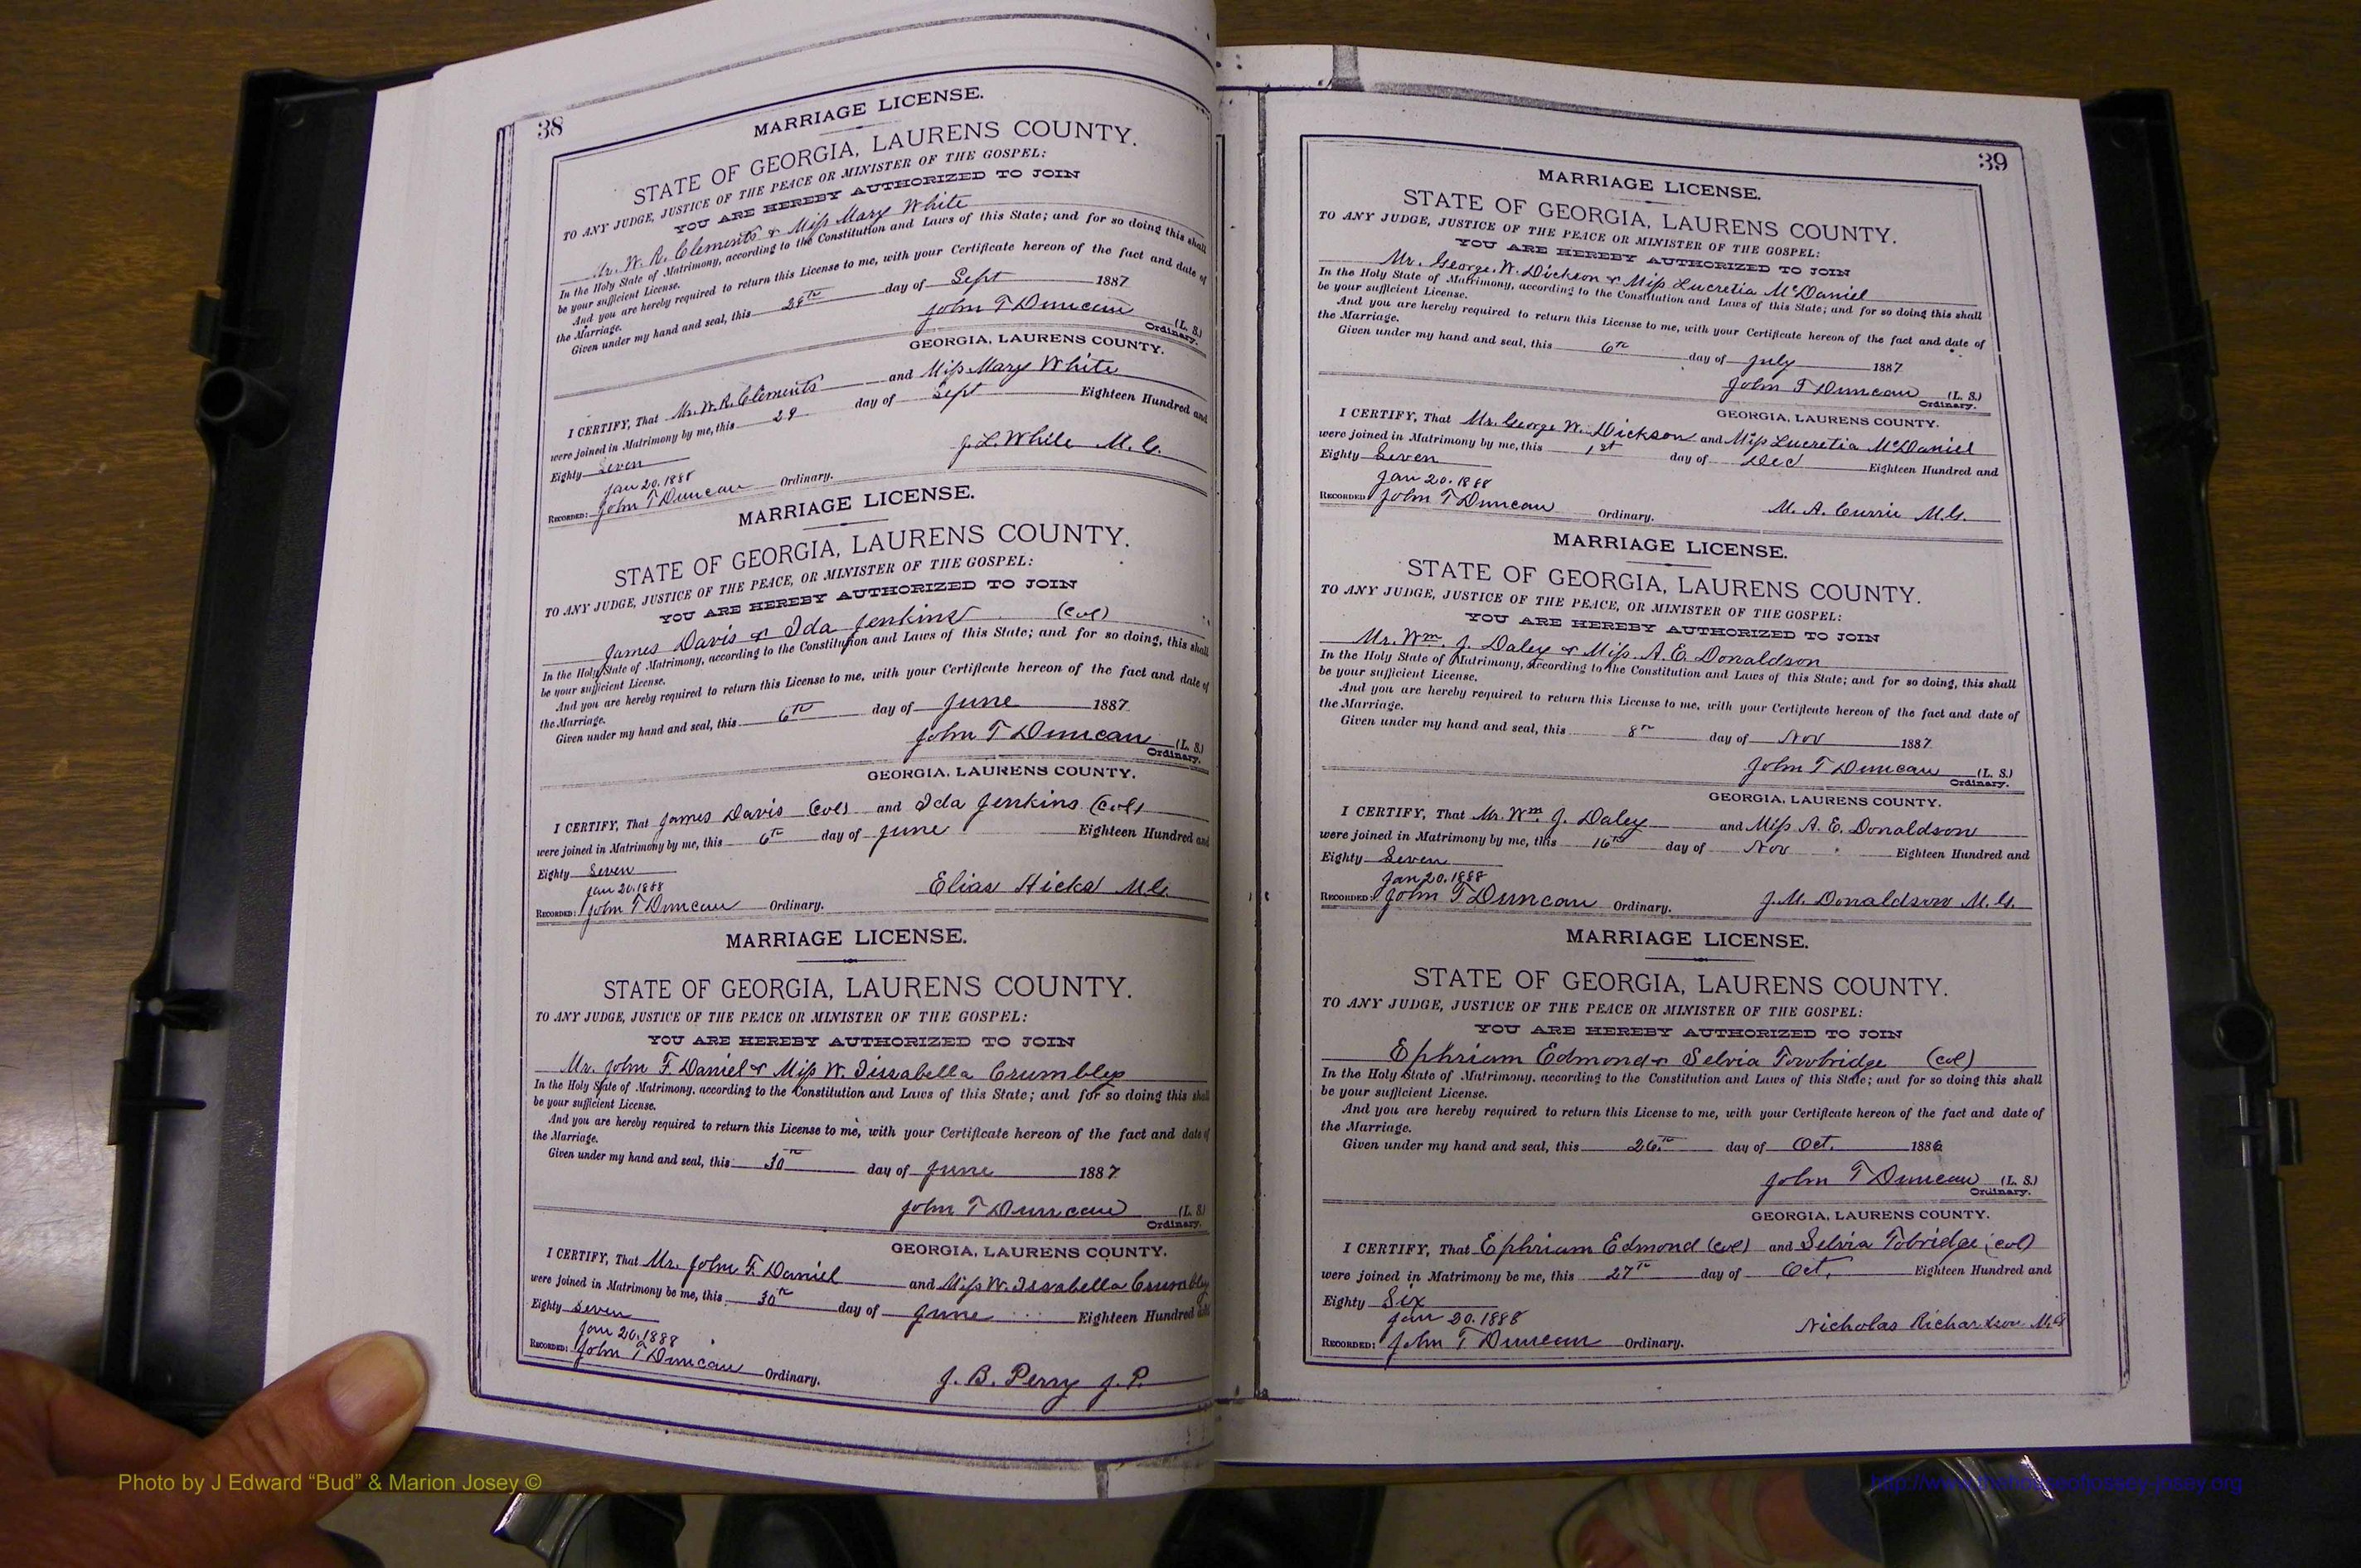 38
MARRIAGE LICENSE.
STATE OF GEORGIA, LAURENS COUNTY.
TO ANY JUDGE, JUSTICE OF THE PEACE OR MINISTER OF THE GOSPEL:
YOU ARE HEREBY AUTHORIZED TO JOIN
Mr. W. R. Clements & Miss Mary White
In the Holy State of Matrimony, according to the Constitution and Laws of this State; and for so doing this shall
be your sufficient License.
And you are hereby required to return this License to me, with your Certificate hereon of the fact and date of
the Marriage.
Given under my hand and seal, this 29th day of Sept 1887
John T Duncan (L. S.)
Ordinary.
GEORGIA, LAURENS COUNTY.
I CERTIFY, That Mr. W. R. Clements and Miss Mary White
were joined in Matrimony by me, this 29 day of Sept Eighteen Hundred and
Eighty Seven
Jan 20. 1888
J. L. White M. G.
RECORDED: John T Duncan Ordinary.
MARRIAGE LICENSE.
STATE OF GEORGIA, LAURENS COUNTY.
TO ANY JUDGE, JUSTICE OF THE PEACE, OR MINISTER OF THE GOSPEL:
YOU ARE HEREBY AUTHORIZED TO JOIN
James Davis & Ida Jenkins (Col)
In the Holy State of Matrimony, according to the Constitution and Laws of this State; and for so doing, this shall
be your sufficient License.
And you are hereby required to return this License to me, with your Certificate hereon of the fact and date of
the Marriage.
Given under my hand and seal, this 6th day of June 1887
John T Duncan (L. S.)
Ordinary.
GEORGIA, LAURENS COUNTY.
I CERTIFY, That James Davis (Col) and Ida Jenkins (Col)
were joined in Matrimony by me, this 6th day of June Eighteen Hundred and
Eighty Seven
Jan 20. 1888
Elias Hicks M. G.
RECORDED: John T Duncan Ordinary.
MARRIAGE LICENSE.
STATE OF GEORGIA, LAURENS COUNTY.
TO ANY JUDGE, JUSTICE OF THE PEACE OR MINISTER OF THE GOSPEL:
YOU ARE HEREBY AUTHORIZED TO JOIN
Mr. John F. Daniel & Miss W. Issabella Crumbley
In the Holy State of Matrimony, according to the Constitution and Laws of this State; and for so doing this shall
be your sufficient License.
And you are hereby required to return this License to me, with your Certificate hereon of the fact and date of
the Marriage.
Given under my hand and seal, this 30th day of June 1887
John T Duncan (L. S.)
Ordinary.
GEORGIA, LAURENS COUNTY.
I CERTIFY, That Mr. John F. Daniel and Miss W. Issabella Crumbley
were joined in Matrimony be me, this 30th day of June Eighteen Hundred and
Eighty Seven
Jan 20. 1888
RECORDED: John T Duncan Ordinary.
J. B. Perry J. P.
39
MARRIAGE LICENSE.
STATE OF GEORGIA, LAURENS COUNTY.
TO ANY JUDGE, JUSTICE OF THE PEACE OR MINISTER OF THE GOSPEL:
YOU ARE HEREBY AUTHORIZED TO JOIN
Mr. George. W. Dickson & Miss Lucretia McDaniel
In the Holy State of Matrimony, according to the Constitution and Laws of this State; and for so doing this shall
be your sufficient License.
And you are hereby required to return this License to me, with your Certificate hereon of the fact and date of
the Marriage.
Given under my hand and seal, this 6th day of July 1887
John T Duncan (L. S.)
Ordinary.
GEORGIA, LAURENS COUNTY.
I CERTIFY, That Mr. George W. Dickson and Miss Lucretia McDaniel
were joined in Matrimony by me, this 1st day of Dec Eighteen Hundred and
Eighty Seven
Jan 20. 1888
RECORDED John T Duncan Ordinary.
M. A. Currie M. G.
MARRIAGE LICENSE.
STATE OF GEORGIA, LAURENS COUNTY.
TO ANY JUDGE, JUSTICE OF THE PEACE, OR MINISTER OF THE GOSPEL:
YOU ARE HEREBY AUTHORIZED TO JOIN
Mr. Wm. J. Daley & Miss. A. E. Donaldson
In the Holy State of Matrimony, according to the Constitution and Laws of this State; and for so doing, this shall
be your sufficient License.
And you are hereby required to return this License to me, with your Certificate hereon of the fact and date of
the Marriage.
Given under my hand and seal, this 8th day of Nov 1887
John T Duncan (L. S.)
Ordinary.
GEORGIA, LAURENS COUNTY.
I CERTIFY, That Mr. Wm. J. Daley and Miss A. E. Donaldson
were joined in Matrimony by me, this 16th day of Nov Eighteen Hundred and
Eighty Seven
Jan 20. 1888
RECORDED: John T Duncan Ordinary.
J. M. Donaldson M. G.
MARRIAGE LICENSE.
STATE OF GEORGIA, LAURENS COUNTY.
TO ANY JUDGE, JUSTICE OF THE PEACE OR MINISTER OF THE GOSPEL:
YOU ARE HEREBY AUTHORIZED TO JOIN
Ephriam Edmond & Selvia Towbridge (col)
In the Holy State of Matrimony, according to the Constitution and Laws of this State; and for so doing this shall
be your sufficient License.
And you are hereby required to return this License to me, with your Certificate hereon of the fact and date of
the Marriage.
Given under my hand and seal, this 26th day of Oct. 1886
John T Duncan (L. S.)
Ordinary.
GEORGIA, LAURENS COUNTY.
I CERTIFY, That Ephriam Edmond (col) and Selvia Tobridge (col)
were joined in Matrimony be me, this 27th day of Oct. Eighteen Hundred and
Eighty Six
Jan 20. 1888
Nicholas Richardson M. G
RECORDED: John T Duncan Ordinary.
Photo by J Edward “Bud” & Marion Josey ©
http://www.thehouseofjossey-josey.org